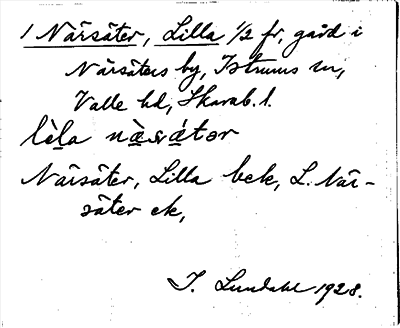 1 Närsäter, Lilla 1/2 fr, gård i
Närsäters by, Istrums sn,
Valle hd, Skarab. l.
lèla nàsátər
Närsäter, Lilla bek, L. När-
säter ek,
I. Lundahl 1928.